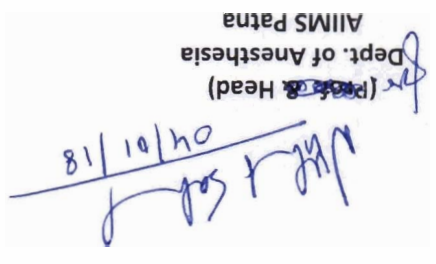 04/01/18
For (Prof. & Head)
Dept. of Anesthesia
AIIMS Patna